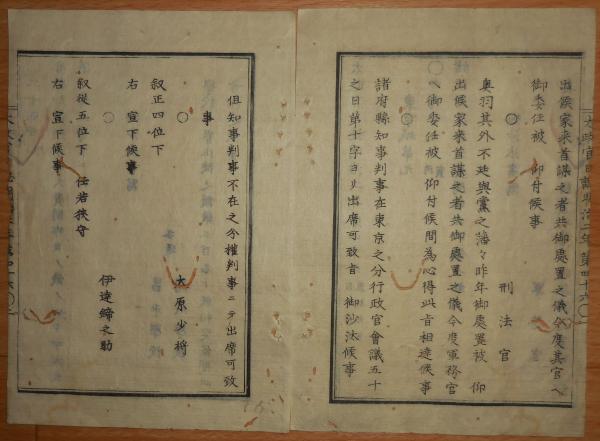 出候家来首謀之者共御處置之儀今度其官ヘ
御委任被 仰付候事
〇
刑法官
奥羽其外不逞與黨之藩々昨年御處置被 仰
出候家来首謀之者共御處置之儀今度軍務官
ヘ御委任被 仰付候間為心得此旨相達候事
〇
諸府縣知事判事在東京之分行政官會議五十
之日第十字ヨリ出席可致旨 御沙汰候事
但知事判事不在之分權判事ニテ出席可致
事
〇
大原少将
叙正四位下
右 宣下候事
〇
伊達鍗之助
叙從五位下 任若狭守
右 宣下候事
太政官日誌明治二年第四十六